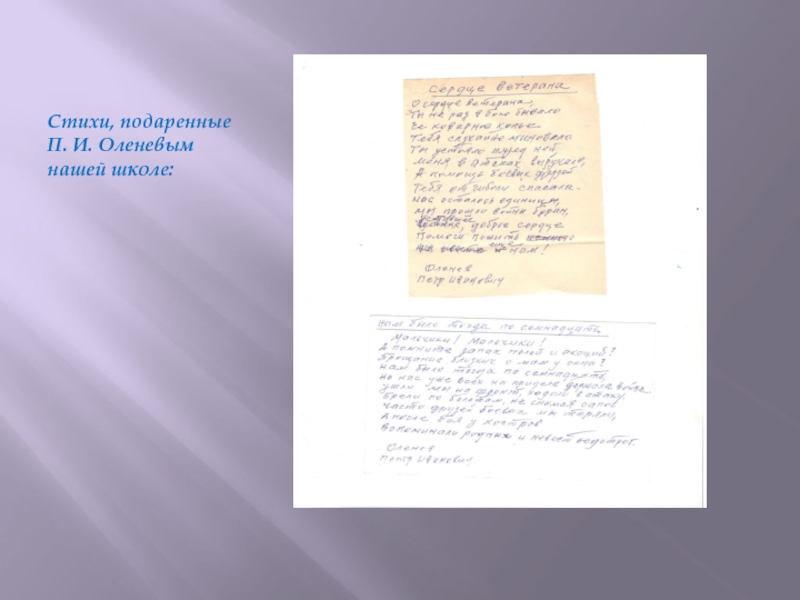 Стихи, подаренные
П. И. Оленевым
нашей школе:
Сердце ветерана
О сердце ветерана,
Ты не раз в бою бывало
Ее коварное копье
Тебя случайно миновало
Ты устояло перед ней
меня в атаках выручало,
А помощь боевых друзей
Тебя от гибели спасала.
Нас осталось единицы,
мы прошли войны буран,
доброе сердце
Помоги пожить
еще нам!
Оленев
Петр Иванович
Нам было тогда по семнадцать
Мальчики! Мальчики!
А помните запах полей и акаций?
Прощание близких и мам у окна?
Нам было тогда по семнадцать,
Но нас уже всех на прицеле держала война.
ушли мы на фронт, ходили в атаку.
Брели по болотам, не снимая сапог
Часто друзей боевых мы теряли,
А после боя у костров
Вспоминали родных и невест
Оленев
Петр Иванович